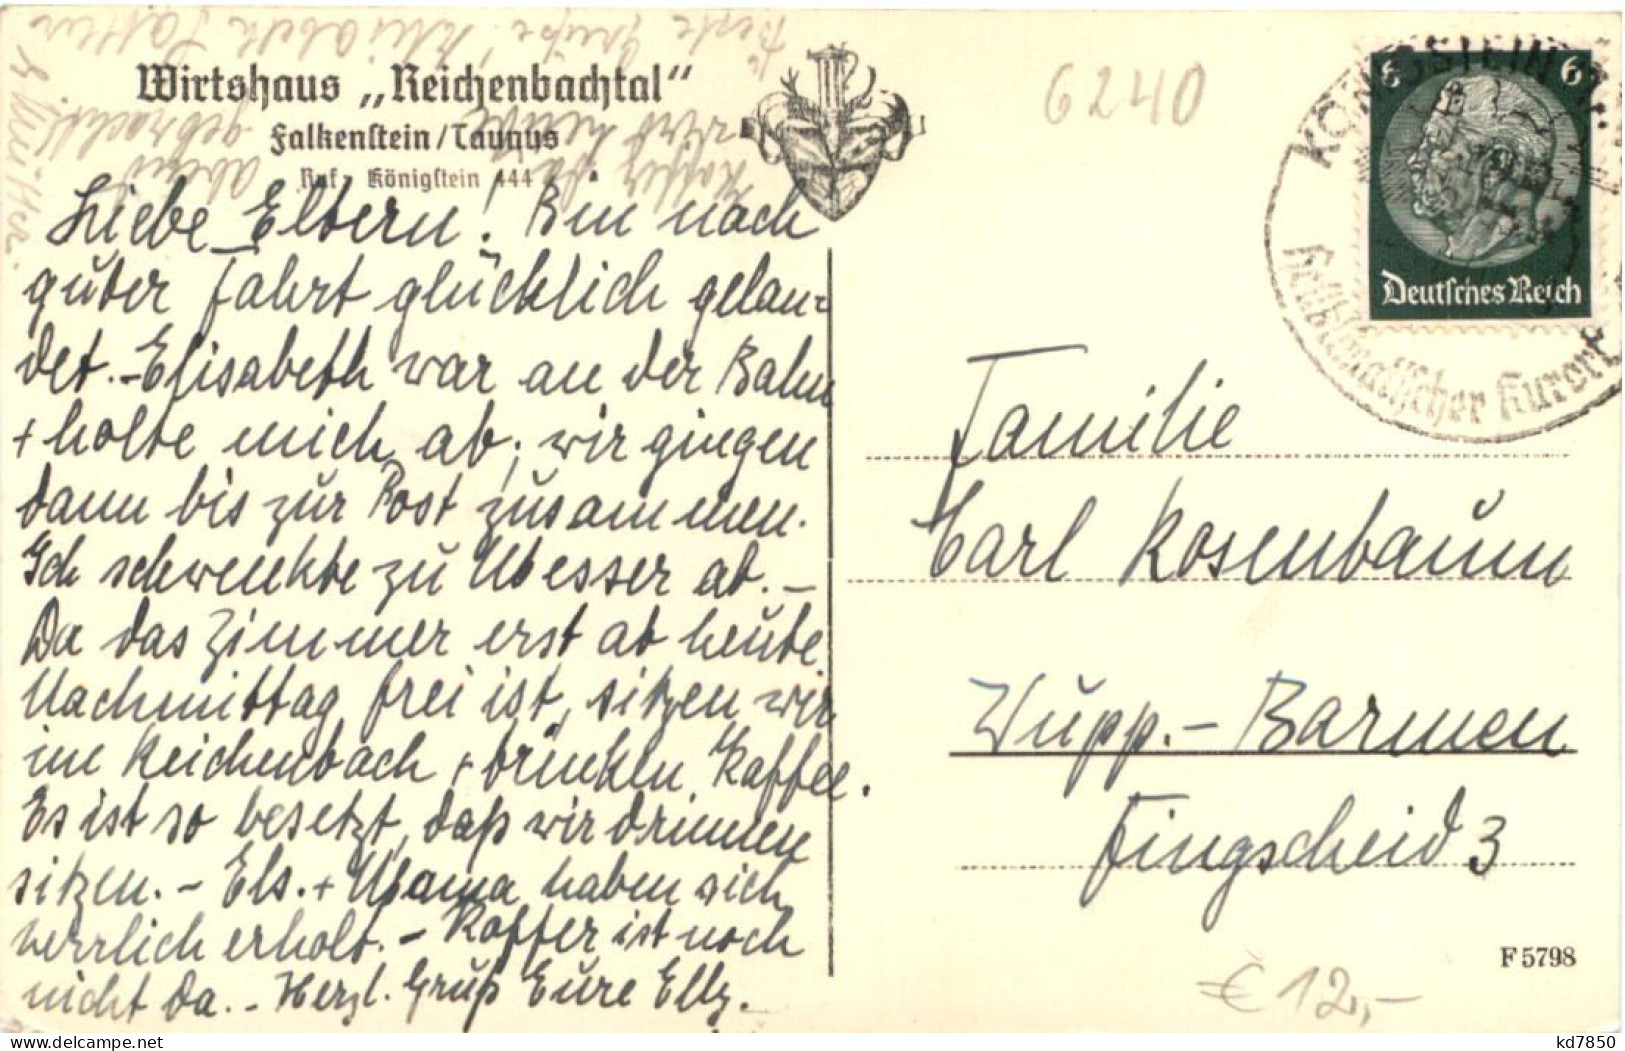 Wirtshaus „Reichenbachtal“
Falkenstein/Taunus
Ruf: Königstein 444
Liebe Eltern! Bin nach
guter Fahrt glücklich gelan-
det. - Elisabeth war an der Bahn
+ holte mich ab; wir gingen
dann bis zur Post zusammen.
Ich schwenkte zu Messer ab. -
Da das Zimmer erst ab heute
Nachmittag frei ist, sitzen wir
im Reichenbach + trinken Kaffee.
Es ist so besetzt, daß wir drinnen
sitzen. - Els. + Mama haben sich
herrlich erholt. - Koffer ist noch
nicht da. - Herzl. Gruß Eure Elly.
Beste Grüße! Elisabeth
Koffer wird heute
abend gebracht.
6240
KÖNIGSTEIN
Heilklimatischer Kurort
6 6
Deutsches Reich
Familie
Carl Rosenbaum
Wupp.-Barmen
Fingscheid 3
F 5798
€ 12,-
kd7850